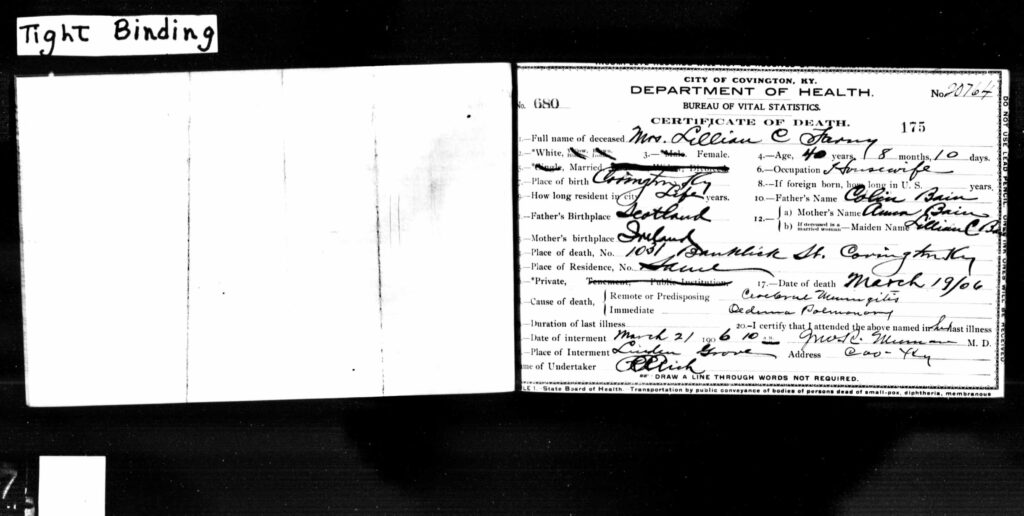 Tight Binding
CITY OF COVINGTON, KY.
DEPARTMENT OF HEALTH. No. 20764
No. 680 BUREAU OF VITAL STATISTICS.
CERTIFICATE OF DEATH. 175
1.—Full name of deceased, Mrs. Lillian C Farny
2.—*White, 3.—Male, Female. 4.—Age, 40 years, 8 months, 10 days.
*Single, Married, Widow, Divorced 6.—Occupation Housewife
Place of birth Covington Ky 8.—If foreign born, how long in U. S. years.
How long resident in city Life years. 10.—Father's Name Colin Bain
—Father's Birthplace Scotland 12.— a) Mother's Name Anna Bain
b) If deceased is a married woman—Maiden Name Lillian C Ba
—Mother's birthplace Ireland
—Place of death, No. 1031 Banklick St. Covington Ky
—Place of Residence, No. Same
—*Private, Tenement, Public Institution. 17.—Date of death March 19/06
—Cause of death, Remote or Predisposing Cerebral Meningitis
Immediate Oedema Pulmonary
—Duration of last illness 20.—I certify that I attended the above named in her last illness
—Date of interment March 21 1906 10 M. D.
—Place of Interment Linden Grove Address Cov- Ky
Name of Undertaker
DRAW A LINE THROUGH WORDS NOT REQUIRED.
State Board of Health. Transportation by public conveyance of bodies of persons dead of small-pox, diphtheria, membranous
DO NOT USE LEAD PENCIL